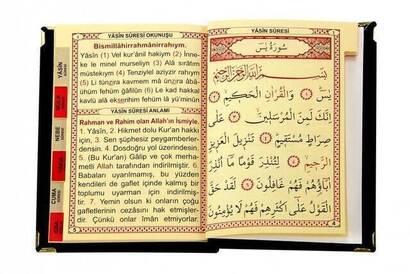 YÂSÎN SÛRESİ OKUNUŞU
Bismillâhirrahmânirrahıym.
YÂSÎN, (1) Vel kur'ânil hakiym (2) İnne-
ke le minel murseliyn (3) Alâ sırâtım
müstekıym (4) Tenziylel aziyzir rahıym
(5) Li tünzira kavmem mâ ünzira âbâ-
ühüm fehüm ğâfilûn (6) Le kad hakkal
kavlü alâ ekserihim fehüm lâ yü'minûn
YÂSÎN SÛRESİ ANLAMI
Rahman ve Rahim olan Allah'ın ismiyle.
1. Yâsîn, 2. Hikmet dolu Kur'an hakkı
için, 3. Sen şüphesiz peygamberler-
densin. 4. Dosdoğru yol üzerindesin.
5. (Bu Kur'an) Gâlip ve çok merha-
metli Allah tarafından indirilmiştir. 6.
Babaları uyarılmamış, bu yüzden
kendileri de gaflet içinde kalmış bir
toplumu uyarman için indirilmiş-
tir. 7. Yemin olsun ki onların çoğu
gafletlerinin cezasını hak etmişler-
dir. Çünkü onlar îman etmiyorlar.
5
YÂSÎN
NEBE
CUMA
YÂSÎN SÛRESİ
سُورَةُ يٰسٓ
بِسْمِ اللّٰهِ الرَّحْمٰنِ الرَّحِيمِ
يٰسٓ ﴿١﴾ وَالْقُرْاٰنِ الْحَكِيمِ ﴿٢﴾
اِنَّكَ لَمِنَ الْمُرْسَلِينَ ﴿٣﴾ عَلٰى
صِرَاطٍ مُسْتَقِيمٍ ﴿٤﴾ تَنْزِيلَ الْعَزِيزِ
الرَّحِيمِ ﴿٥﴾ لِتُنْذِرَ قَوْمًا مَٓا اُنْذِرَ
اٰبَٓاؤُهُمْ فَهُمْ غَافِلُونَ ﴿٦﴾ لَقَدْ حَقَّ
الْقَوْلُ عَلٰٓى اَكْثَرِهِمْ فَهُمْ لَا يُؤْمِنُونَ
4